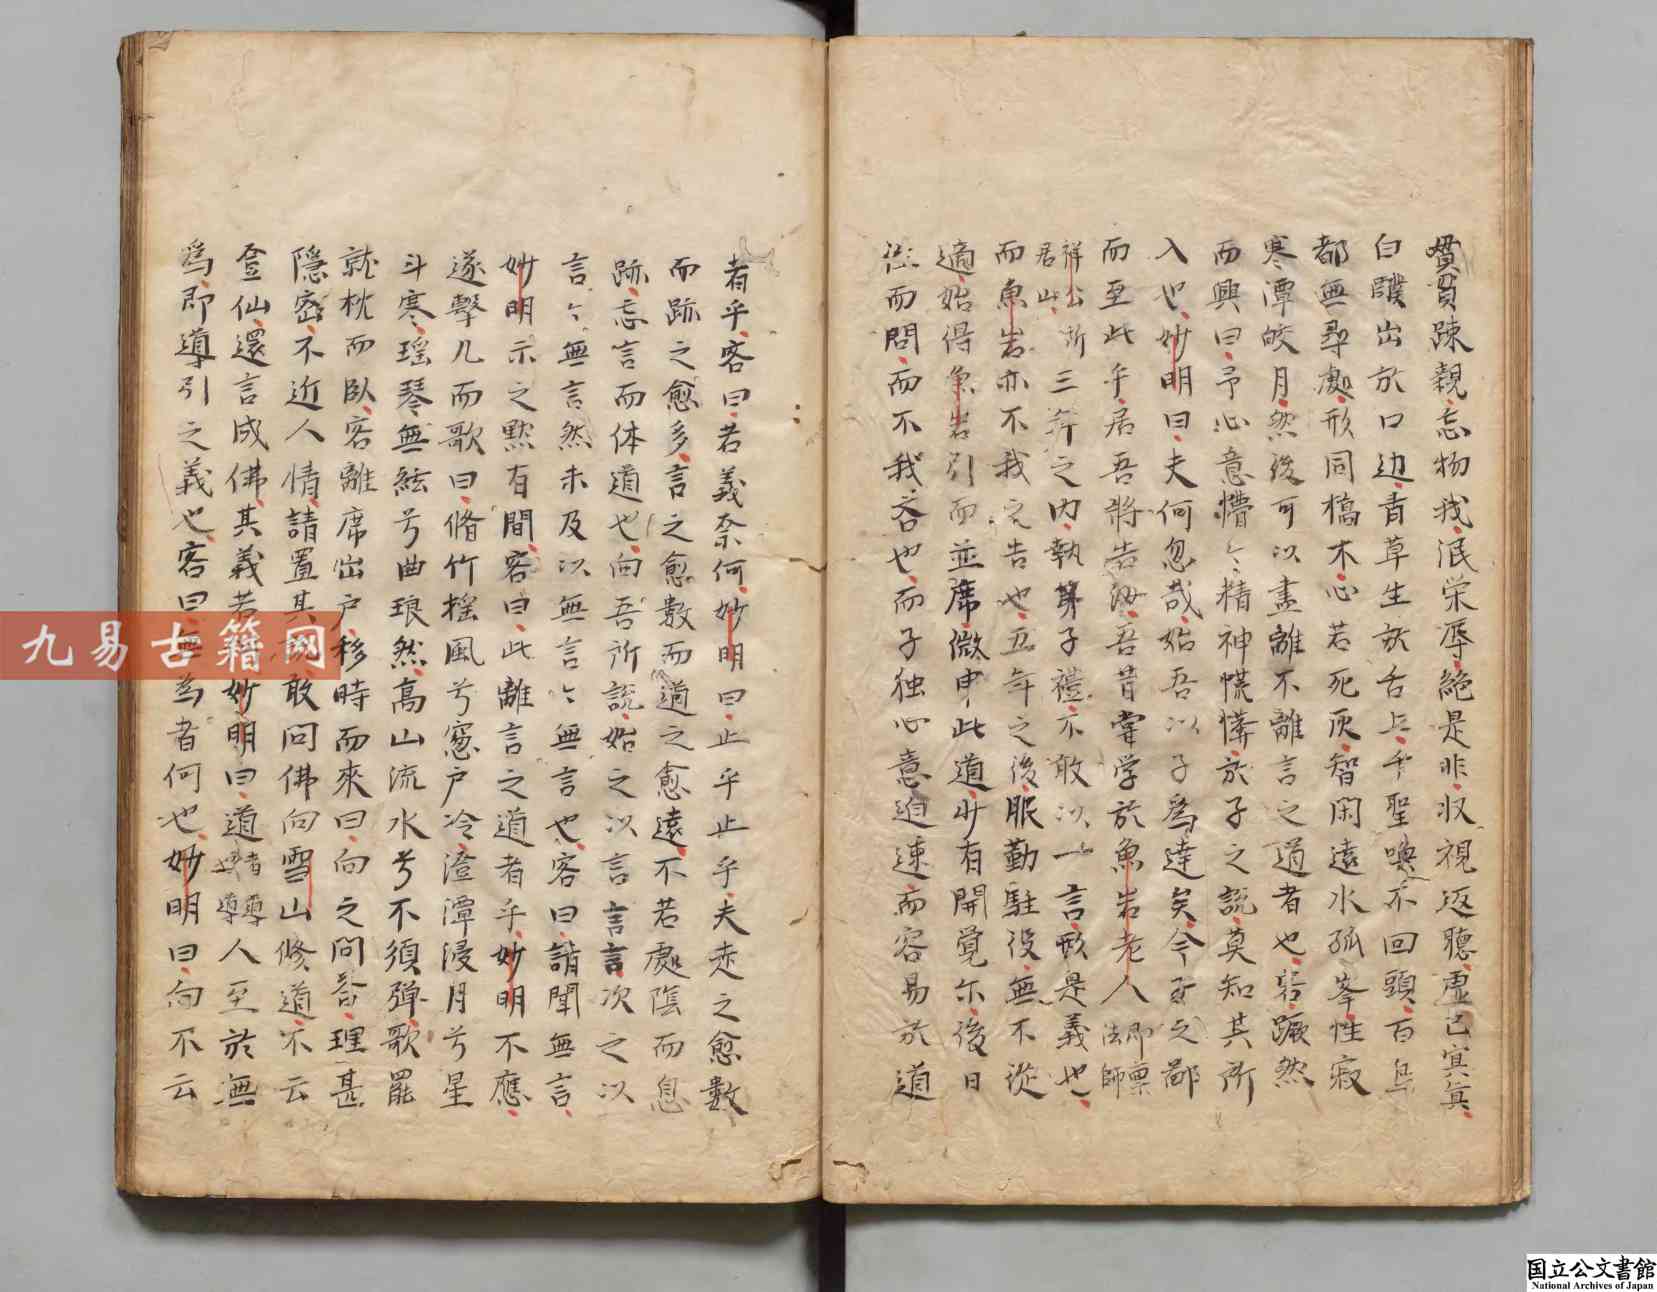 貫貫踈親忘物我泯栄辱絶是非収視返聴虚己㝠眞
白醭出於口边青草生於舌上千聖喚不回頭百鳥
都無尋處形同槁木心若死灰智閑遠水孤峯性寂
寒潭皎月然後可以盡離不離言之道者也客蹶然
而興曰予心意懵〻精神慌㦬於子之説莫知其所
入也妙明曰夫何忽哉始吾以子爲達矣今至之鄙
而至此乎居吾将告汝吾昔甞学於魚岩老人即稟法師
祥公所居山三年之内執弟子禮不敢以一言形是義也
而魚岩亦不我之告也五年之後服勤駐役無不從
適始得魚岩引而並席微申此道少有開覚尓後日
従而問而不我答也而子独心意迫速而容易於道
者乎客曰若義奈何妙明曰止乎止乎夫走之愈數
而跡之愈多言之愈數而道之愈遠不若處陰而息
跡忘言而体道也向吾所說始之以言言次之以
言〻無言然未及以無言〻無言也客曰請聞無言
妙明示之黙有間客曰此離言之道者乎妙明不應
遂擊几而歌曰脩竹揺風兮窓戸冷澄潭浸月兮星
斗寒瑶琴無絃兮曲琅然高山流水兮不須弾歌罷
就枕而臥客離席出戸移時而來曰向之問答理甚
隱密不近人情請置其敢問佛向雪山修道不云
登仙還言成佛其義若妙明曰道者導人至於無
爲即導引之義也客曰無為者何也妙明曰向不云
九易古籍网
国立公文書館
National Archives of Japan